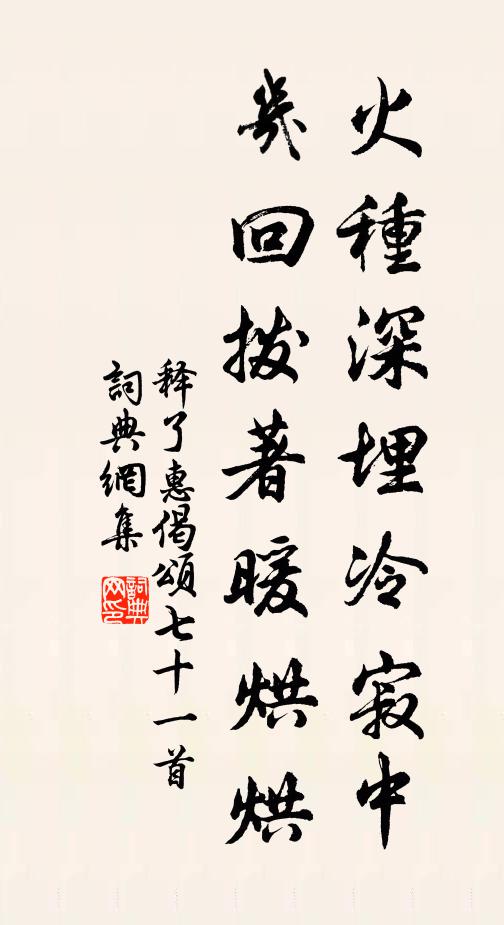 火種深埋冷寂中
幾回撥著暖烘烘
释了惠偈頌七十一首
詞典網集
詞典网印